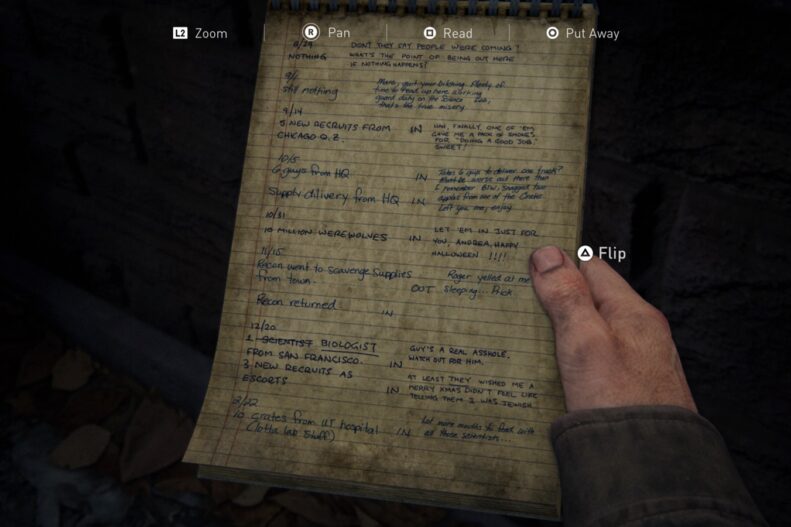 L2 Zoom R Pan Read Put Away
8/29
NOTHING
DON'T THEY SAY PEOPLE WERE COMING?
WHAT'S THE POINT OF BEING OUT HERE
IF NOTHING HAPPENS!
9/1
still nothing
Marc, quit your bitching. Plenty of
time to head up here working
guard duty on the Science Lab,
that's the true misery.
9/14
5 NEW RECRUITS FROM
CHICAGO Q.Z.
IN
HAH, FINALLY, ONE OF 'EM
GAVE ME A PACK OF SMOKES
FOR "DOING A GOOD JOB."
SWEET!
10/5
6 guys from HQ
IN
Supply dilivery from HQ
IN
Takes 6 guys to deliver one truck?
Must be worse out there than
I remember. BTW, snagged two
apples from one of the crates.
Left you one, enjoy.
10/31
10 MILLION WEREWOLVES
IN
LET 'EM IN JUST FOR
YOU, ANDREA, HAPPY
HALLOWEEN !!!!
11/15
Recon went to scavenge supplies
from town.
OUT
Roger yelled at me
sleeping... Prick
Recon returned
IN
12/20
1 SCIENTIST BIOLOGIST
FROM SAN FRANCISCO.
IN
GUY'S A REAL ASSHOLE.
WATCH OUT FOR HIM.
3 NEW RECRUITS AS
ESCORTS
IN
AT LEAST THEY WISHED ME A
MERRY XMAS DIDN'T FEEL LIKE
TELLING THEM I WAS JEWISH.
10 crates from UT hospital
(lotta lab stuff)
IN
Lot more mouths to feed with
all these scientists.
Flip